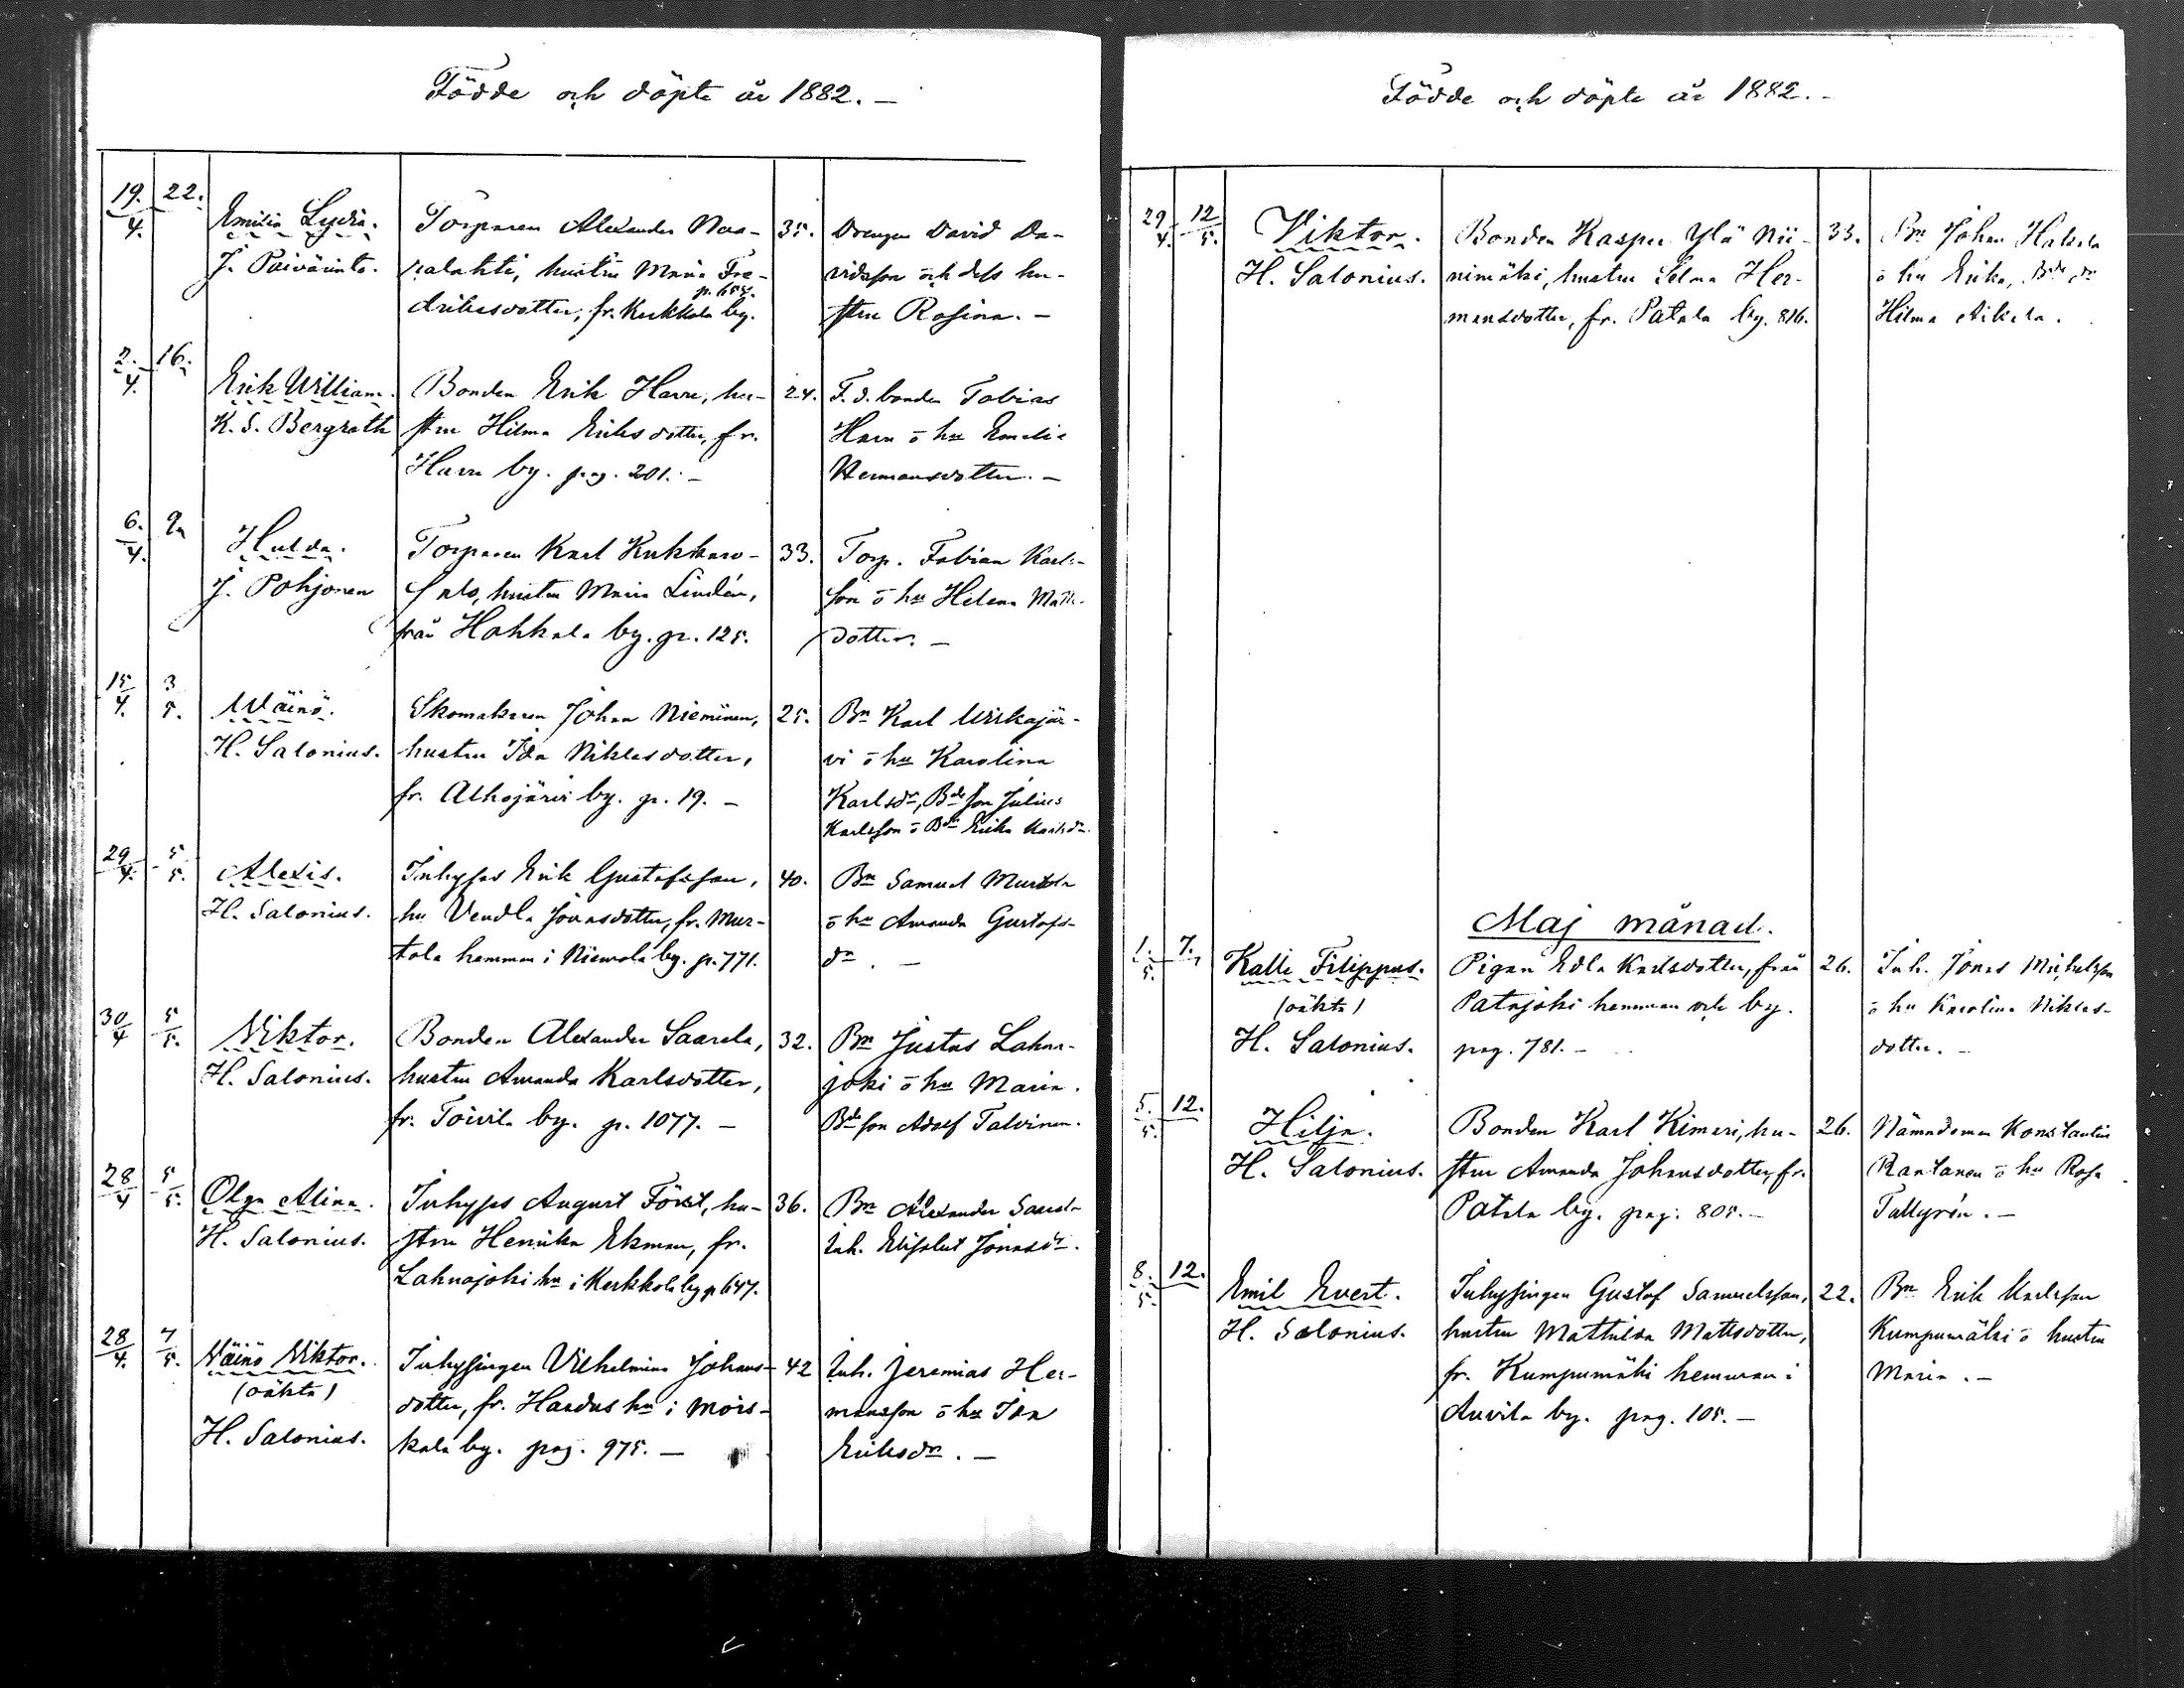 Födde och döpte år 1882. —
19./4. 22.
Emilia Lydia.
J. Päivärinta.
Torparen Alexander Naa-
ralahti, hustru Maria Fre-
driksdotter, fr. Kerkkola by.
35.
Drengen David Da-
vidsson och dess hu-
stru Rosina. —
2./4. 16.
Erik William.
K. S. Bergroth
Bonden Erik Harru, hu-
stru Hilma Eriksdotter, fr.
Harru by. pag. 201. —
24.
F. d. bonden Tobias
Harru o hu Emelie
Hermansdotter. —
6./4. 9
Hulda.
J. Pohjonen
Torparen Karl
hustru Maria Lindén,
från Hahkala by. p. 125.
33.
Torp. Fabian Karls-
son o hu Helena Matts-
dotter. —
15/4. 3/5.
Wäinö.
H. Salonius.
Skomakaren Johan Nieminen,
hustru Ida Niklasdotter,
fr. Alhojärvi by. p. 19. —
25.
Bn Karl Wirkajär-
vi o hu Karolina
Karlsdr, Bdeson Julius
Karlsson o Bdr Erika Karlsdr.
29/4. 5/5.
Alexis.
H. Salonius.
Inhyses Erik Gustafsson,
hu Vendla Jonasdotter, fr. Mur-
tola hemman i by. p. 771.
40.
Bn Samuel Murtola
o hu Amanda Gustafs-
dr. —
30/4 5/5.
Viktor.
H. Salonius.
Bonden Alexander Saarela,
hustru Amanda Karlsdotter,
fr. Toivila by. p. 1077. —
32.
Bn Justus Lahna-
joki o hu Maria.
Bdeson Adolf Talvinen.
28/4 5/5.
Olga Alina.
H. Salonius.
Inhyses August Först, hu-
stru Henrika Ekman, fr.
Lahnajoki hn i Kerkkola by p 647.
36.
Bn Alexander Saarela
Inh. Jonasdr.
28/4. 7/5.
Väinö Viktor.
(oäkta)
H. Salonius.
Inhysingen Vilhelmina Johans-
dotter, fr. Haudus hn i Mois-
kala by. pag. 975. —
42
Inh. Jeremias Her-
mansson o hu Ida
Eriksdr. —
Födde och döpte år 1882. -
29/4. 12/5.
Viktor.
H. Salonius.
Bonden Kasper Ylä Nii-
nimäki, hustru Selma Her-
mansdotter, fr. Patala by. 816.
33.
Bn Johan Hakala
o hu Erika, Bde dr
Hilma Aikala.
Maj månad.
1./5. 7.
Kalle Filippus.
(oäkta)
H. Salonius.
Pigan Edla Karlsdotter, från
Patajoki hemman och by.
pag. 781. —
26.
Inh. Jonas Michelsson
o hu Karolina Niklas-
dotter. —
5./5. 12.
Hilja.
H. Salonius.
Bonden Karl Kimeri, hu-
stru Amanda Johansdotter, fr.
Patala by. pag. 805. —
26.
Nämndeman Konstantin
Rantanen o hu Rosa
Tallgrén. —
8./5. 12.
Emil Evert.
H. Salonius.
Inhysingen Gustaf Samuelsson,
hustru Mathilda Mattsdotter,
fr. Kumpumäki hemman i
Auvila by. pag. 105. —
22.
Bn Erik Karlsson
Kumpumäki o hustru
Maria. —